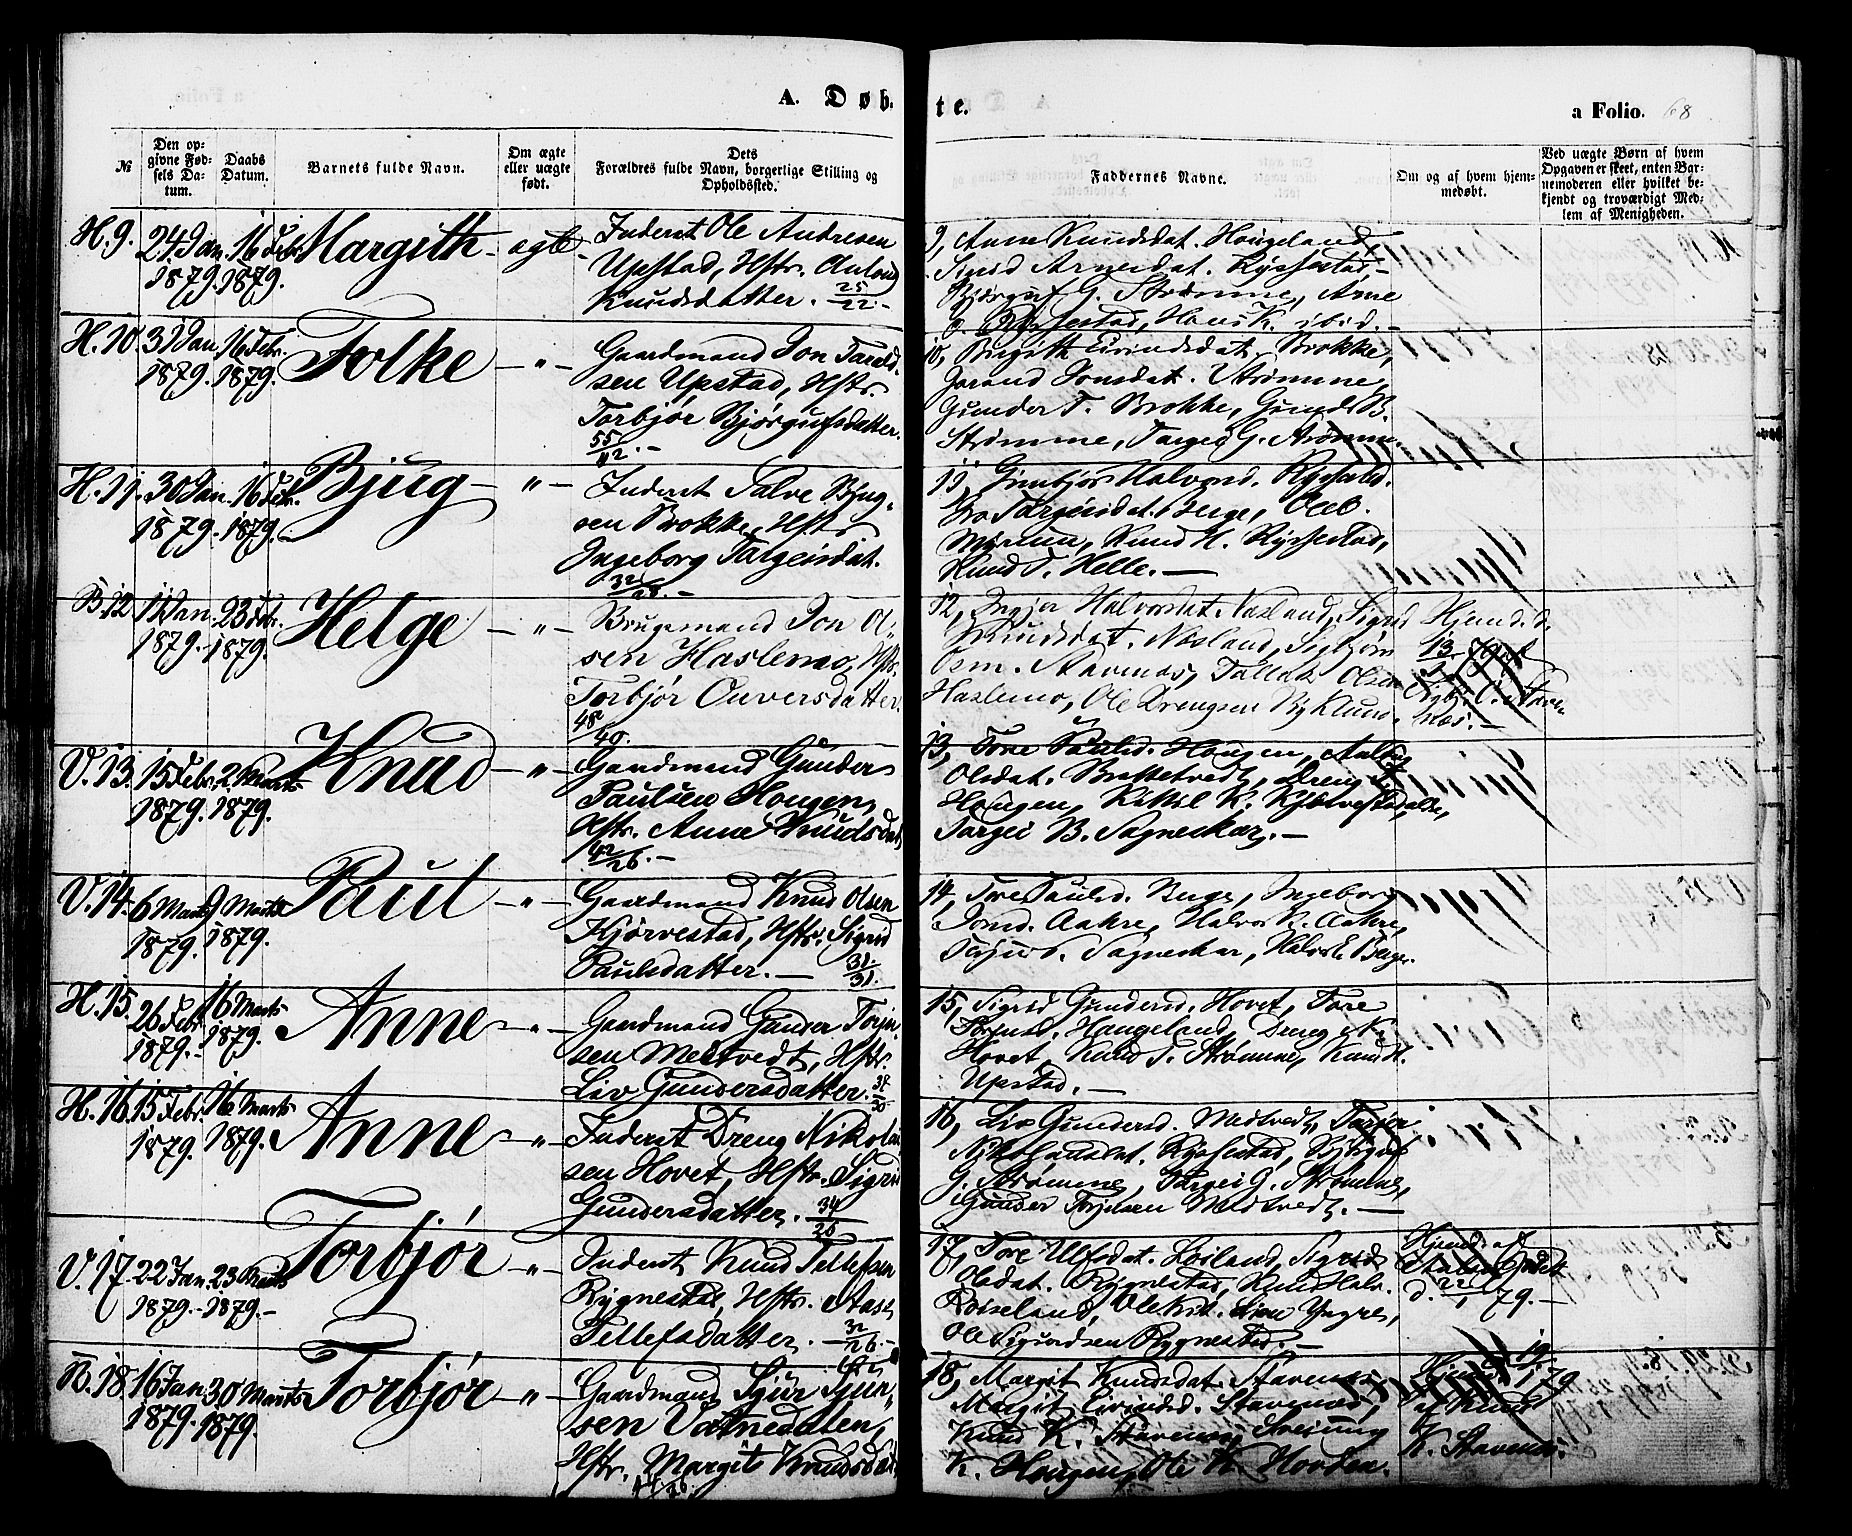 A. Døb-
te.
a Folio. 68
№
Den op-
givne Fød-
sels Da-
tum.
Daabs
Datum.
Barnets fulde Navn.
Om ægte
eller uægte
født.
Dets
Forældres fulde Navn, borgerlige Stilling og
Opholdssted.
Faddernes Navne.
Om og af hvem hjem-
medøbt.
Ved uægte Børn af hvem
Opgaven er skeet, enten Bar-
nemoderen eller hvilket be-
kjendt og troværdigt Med-
lem af Menigheden.
H. 9. 24 Jan. 16 Febr. Margith - ægte -
1879. 1879.
Inderst Ole Andresen
Upstad, Hstr.
Knudsdatter. 25/22 -
9, Anne Knudsdat. Hougeland,
Sigrid Arnesdat. Ryssestad -
Bjørguf G. Strømme, Arne
O. Ryssestad, Hans K. ibid. -
H. 10. 31 Jan. 16 Febr. Folke - " -
1879. 1879.
Gaardmand Jon Tarald-
sen Upstad, Hstr.
Torbjør Bjørgufsdatter.
55/42. -
10, Birgith Eivindsdat. Brokke,
Joraand Jonsdat. Strømme,
Gunder T. Brokke, Gunder B.
Strømme, Targei G. Strømme.
H. 11. 30 Jan. 16 Febr. Bjug - " -
1879. 1879.
Inderst Salve Bjug-
sen Brokke, Hstr.
Ingeborg Targeisdat.
32/28. -
11, Gunbjør Halvorsd. Rysstad.
Targeisdat. Berge, Oleb.
Knud H. Ryssestad,
Knud T. Helle. -
B. 12 11 Jan. 23 Febr. Helge - " -
1879. 1879.
Brugsmand Jon Ol-
sen Haslemo, Hstr.
Torbjør Ouversdatter.
48/40.
12, Ingjer Halvorsdat. Næsland, Sigrid
Knudsdat. Næsland, Sigbjørn
Osm. Stavenæs, Tallak Olsen
Haslemo, Ole Drengsen Byklum.
Hjemd. d.
13/1 79 af
Sigbj. O. Stave-
næs. -
V. 13. 15 Febr. 2 Marts Knud - " -
1879. 1879.
Gaardmand Gunder
Paulsen Hougen,
Hstr. Anne Knudsdat.
42/26. -
13, Tore Paulsd. Hougen,
Olsdat. Brottetvedt, Dreng
Hougen, Kittil K. Kjølvestadalse,
Targei B. Sagneskar. -
V. 14. 6 Marts 9 Marts Paul - " -
1879. 1879.
Gaardmand Knud Olsen
Kjørvestad, Hstr. Sigrid
Paulsdatter. - 31/31.
14, Tore Paulsd. Berge, Ingeborg
Jonsd. Aakre, Halvor K. Aakre,
Terjus S. Sagneskar, Halv. E. Berge.
H. 15. 26 Febr. 16 Marts Anne - " -
1879. - 1879.
Gaardmand Gunder Torju-
sen Medtvedt, Hstr.
Liv Gundersdatter.
15, Sigrid Gundersd. Hovet, Tore
Hougeland, Dreng N.
Hovet, Knud T. Strømme, Knud H.
Upstad. -
H. 16. 15 Febr. 16 Marts Anne - " -
1879. 1879.
Inderst Dreng Nikolai-
sen Hovet, Hstr. Sigrid
Gundersdatter. 34/25
16, Liv Gundersd. Medtvedt, Torbjør
Nikolausdat. Ryssestad, Bjørguf
G. Strømme, Targei G. Strømme,
Gunder Torjusen Medtvedt. -
V. 17. 22 Jan. 23 Marts Torbjør - " -
1879. - 1879. -
Inderst Knud Tellefsen
Rygnestad, Hstr. Aase
Tellefsdatter. - 32/26. -
17, Tore Ulfsdat. Løiland, Sigrid
Olsdat. Rygnestad, Knud Halv.
Roiseland, Ole Yngre,
Ole Sigurdsen Rygnestad. -
Hjemd. af
d. 22/1 79. -
B. 18. 16 Jan. 30 Marts Torbjør - " -
1879. 1879.
Gaardmand Sjur Sjur-
sen Vatnedalen,
Hstr. Margit Knudsdat.
18, Margit Knudsdat. Stavenæs,
Margit Eivindsd. Stavenæs,
Knud K. Stavenæs,
K. Hougen, Ole K. Hovden.
Hjemd. 19/1 79
af Knud
K. Stavenæs.